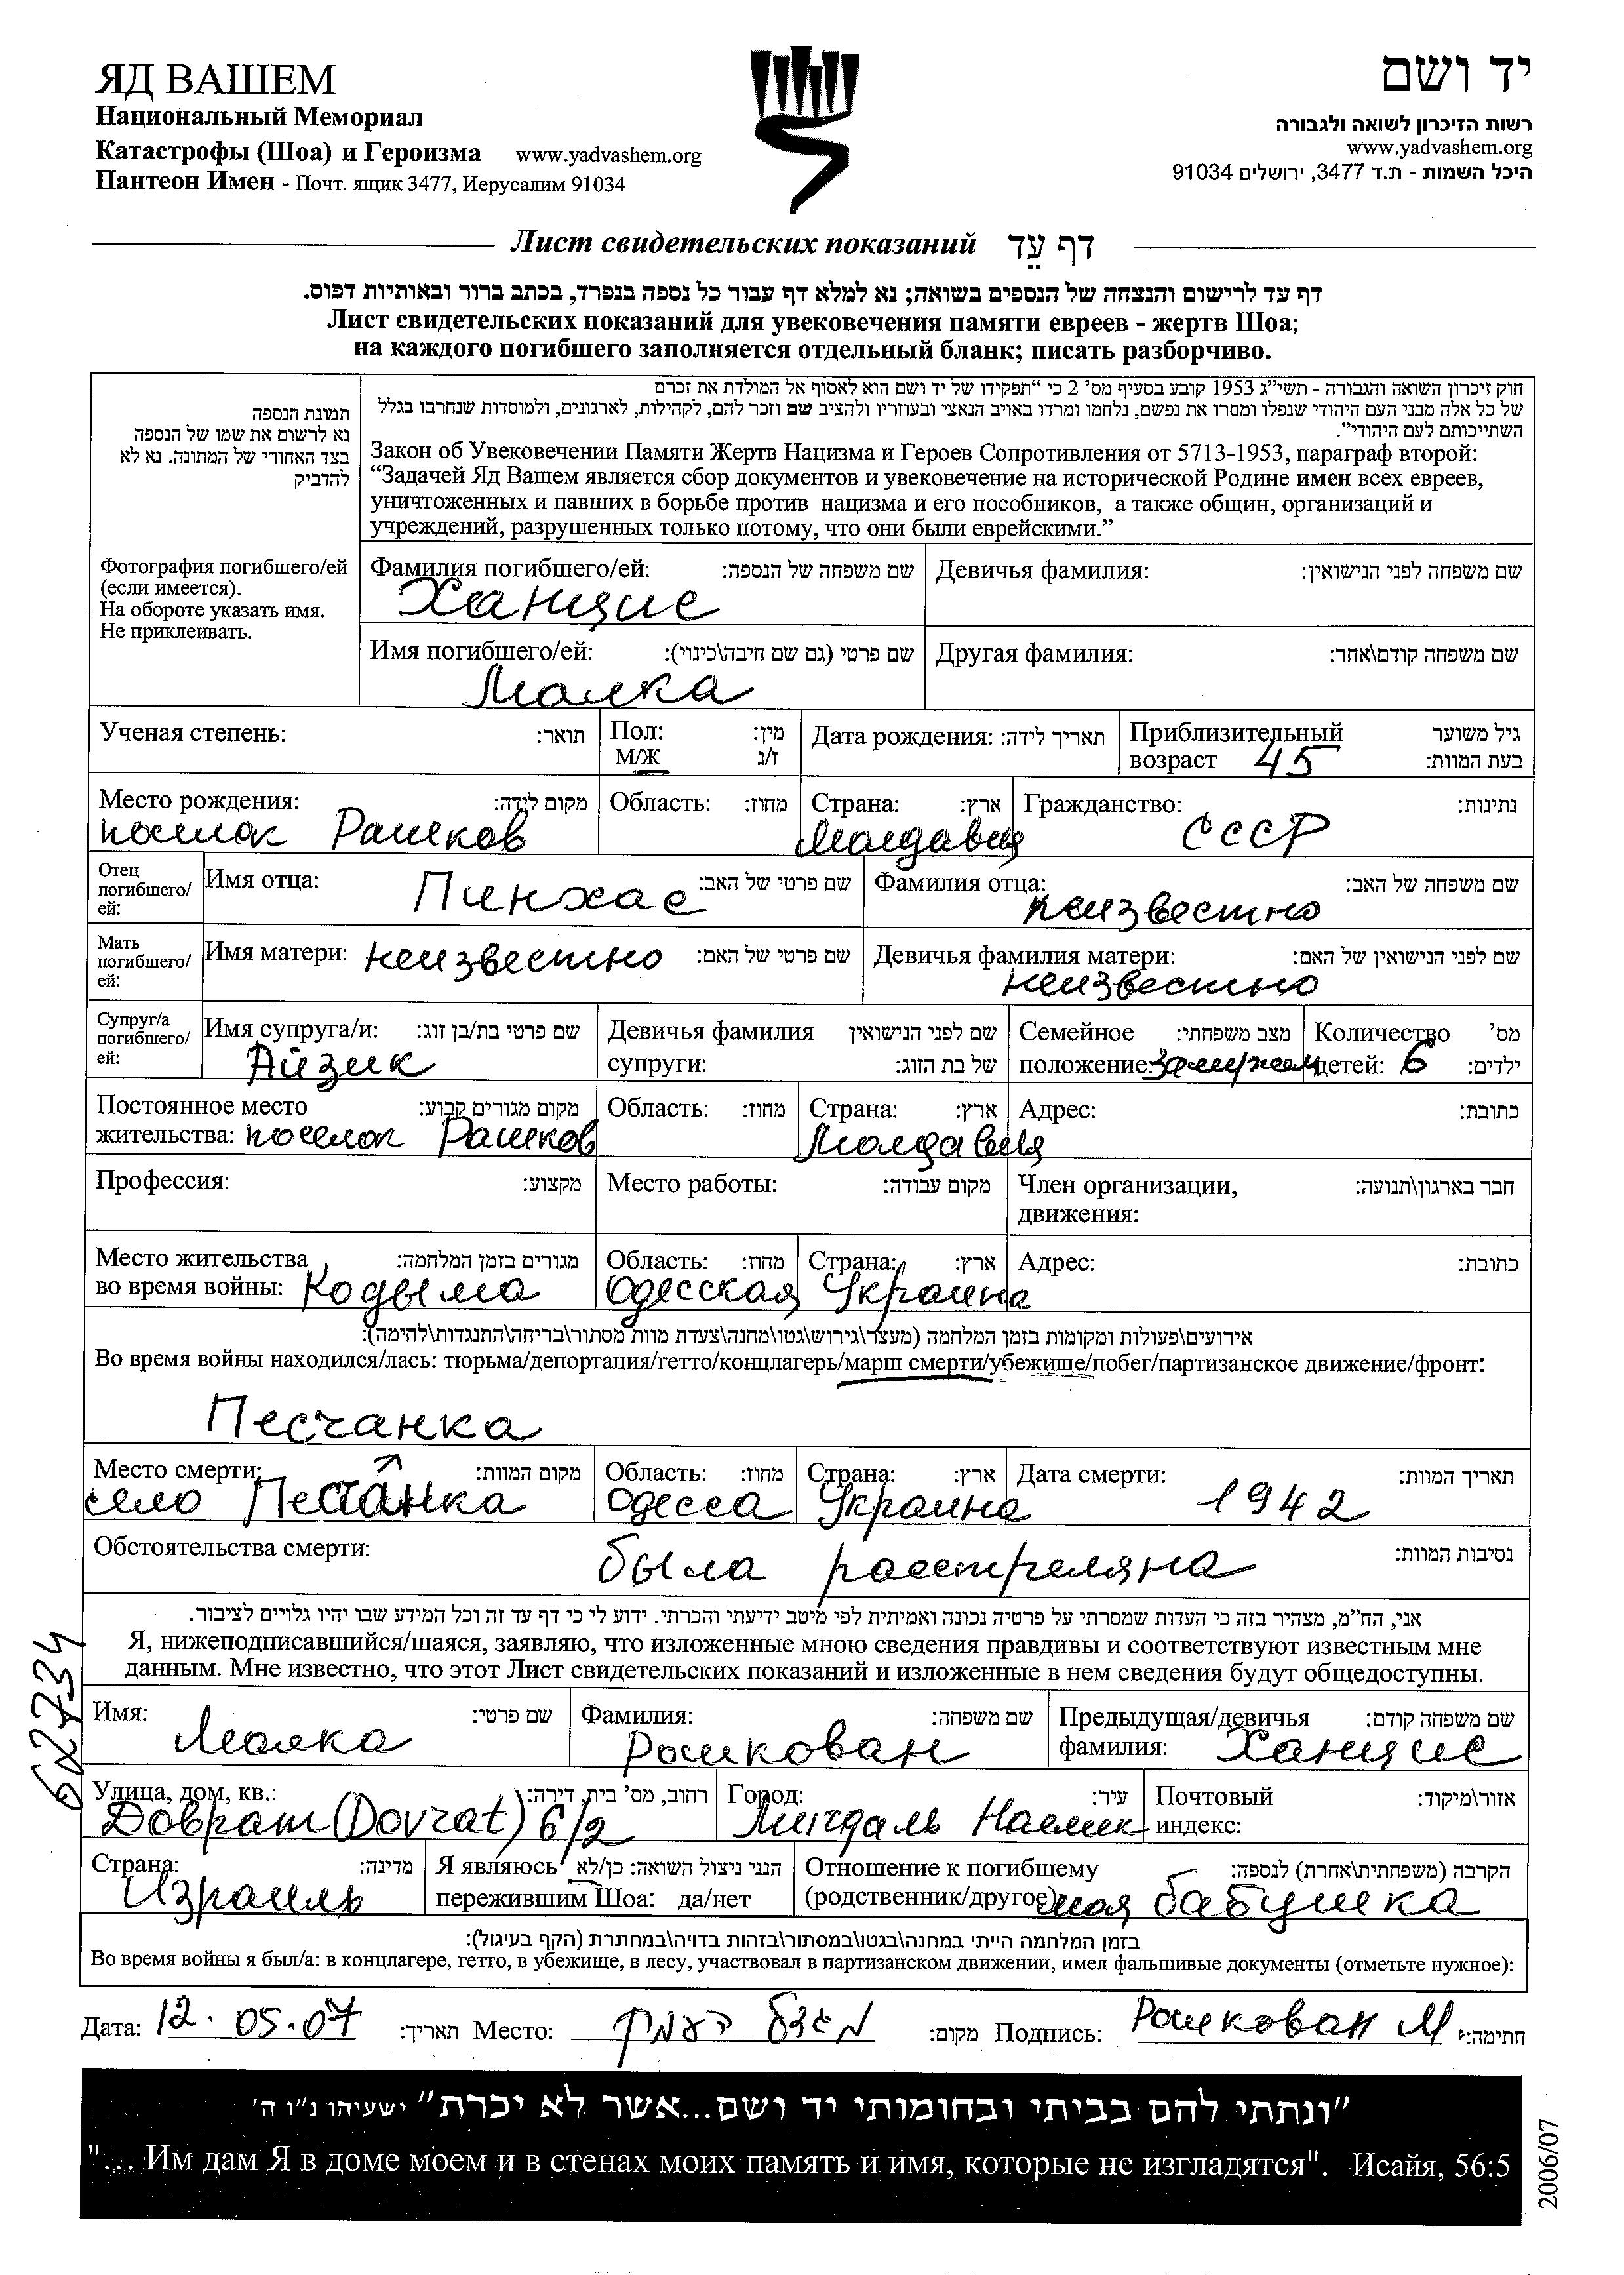 ЯД ВАШЕМ
Национальный Мемориал
Катастрофы (Шоа) и Героизма www.yadvashem.org
Пантеон Имен - Почт. ящик 3477, Иерусалим 91034
יד ושם
רשות הזיכרון לשואה ולגבורה
www.yadvashem.org
היכל השמות - ת.ד 3477, ירושלים 91034
Лист свидетельских показаний דף עֵד
דף עד לרישום והנצחה של הנספים בשואה; נא למלא דף עבור כל נספה בנפרד, בכתב ברור ובאותיות דפוס.
Лист свидетельских показаний для увековечения памяти евреев - жертв Шоа;
на каждого погибшего заполняется отдельный бланк; писать разборчиво.
תמונת הנספה
נא לרשום את שמו של הנספה
בצד האחורי של המתונה. נא לא
להדביק
Фотография погибшего/ей
(если имеется).
На обороте указать имя.
Не приклеивать.
חוק זיכרון השואה והגבורה - תשי"ג 1953 קובע בסעיף מס' 2 כי "תפקידו של יד ושם הוא לאסוף אל המולדת את זכרם
של כל אלה מבני העם היהודי שנפלו ומסרו את נפשם, נלחמו ומרדו באויב הנאצי ובעוזריו ולהציב שם וזכר להם, לקהילות, לארגונים, ולמוסדות שנחרבו בגלל
השתייכותם לעם היהודי".
Закон об Увековечении Памяти Жертв Нацизма и Героев Сопротивления от 5713-1953, параграф второй:
"Задачей Яд Вашем является сбор документов и увековечение на исторической Родине имен всех евреев,
уничтоженных и павших в борьбе против нацизма и его пособников, а также общин, организаций и
учреждений, разрушенных только потому, что они были еврейскими."
Фамилия погибшего/ей: שם משפחה של הנספה:
Ханцис
Девичья фамилия: שם משפחה לפני הנישואין:
Имя погибшего/ей: שם פרטי (גם שם חיבה\כינוי):
Малка
Другая фамилия: שם משפחה קודם\אחר:
Ученая степень: תואר:
Пол: מין:
М/Ж ז/נ
Дата рождения: תאריך לידה:
Приблизительный גיל משוער
возраст 45 בעת המוות:
Место рождения: מקום לידה:
поселок Рашков
Область: מחוז:
Страна: ארץ:
Молдавия
Гражданство: נתינות:
СССР
Отец
погибшего/
ей:
Имя отца: Пинхас שם פרטי של האב:
Фамилия отца: שם משפחה של האב:
неизвестно
Мать
погибшего/
ей:
Имя матери: неизвестно שם פרטי של האם:
Девичья фамилия матери: שם לפני הנישואין של האם:
неизвестно
Супруг/а
погибшего/
ей:
Имя супруга/и: שם פרטי בת/בן זוג:
Айзик
Девичья фамилия שם לפני הנישואין
супруги: של בת הזוג:
Семейное מצב משפחתי:
положение: замужем
Количество מס'
детей: 6 ילדים:
Постоянное место מקום מגורים קבוע:
жительства: поселок Рашков
Область: מחוז:
Страна: ארץ:
Молдавия
Адрес: כתובת:
Профессия: מקצוע:
Место работы: מקום עבודה:
Член организации, חבר בארגון\תנועה:
движения:
Место жительства מגורים בזמן המלחמה:
во время войны: Кодыма
Область: מחוז:
Одесская
Страна: ארץ:
Украина
Адрес: כתובת:
אירועים\פעולות ומקומות בזמן המלחמה (מעצר\גירוש\גטו\מחנה\צעדת מוות מסתור\בריחה\התנגדות\לחימה):
Во время войны находился/лась: тюрьма/депортация/гетто/концлагерь/марш смерти/убежище/побег/партизанское движение/фронт:
Песчанка
Место смерти: מקום המוות:
село Песчанка
Область: מחוז:
Одесса
Страна: ארץ:
Украина
Дата смерти: תאריך המוות:
1942
Обстоятельства смерти: נסיבות המוות:
была расстреляна
אני, הח"מ, מצהיר בזה כי העדות שמסרתי על פרטיה נכונה ואמיתית לפי מיטב ידיעתי והכרתי. ידוע לי כי דף עד זה וכל המידע שבו יהיו גלויים לציבור.
Я, нижеподписавшийся/шаяся, заявляю, что изложенные мною сведения правдивы и соответствуют известным мне
данным. Мне известно, что этот Лист свидетельских показаний и изложенные в нем сведения будут общедоступны.
627734
Имя: שם פרטי:
Малка
Фамилия: שם משפחה:
Рошкован
Предыдущая/девичья שם משפחה קודם:
фамилия: Ханцис
Улица, дом, кв.: רחוב, מס' בית, דירה:
Доврат (Dovrat) 6/2
Город: עיר:
Мигдаль Наемек
Почтовый אזור\מיקוד:
индекс:
Страна: מדינה:
Израиль
Я являюсь הנני ניצול השואה: כן/לא
пережившим Шоа: да/нет
Отношение к погибшему הקרבה (משפחתית\אחרת) לנספה:
(родственник/другое) моя бабушка
בזמן המלחמה הייתי במחנה\בגטו\במסתור\בזהות בדויה\במחתרת (הקף בעיגול):
Во время войны я был/а: в концлагере, гетто, в убежище, в лесу, участвовал в партизанском движении, имел фальшивые документы (отметьте нужное):
Дата: 12.05.07 תאריך: Место: מגדל העמק מקום: Подпись: Рошкован М חתימה:
"ונתתי להם בביתי ובחומותי יד ושם...אשר לא יכרת" ישעיהו נ"ו ה'
"... Им дам Я в доме моем и в стенах моих память и имя, которые не изгладятся". Исайя, 56:5
2006/07